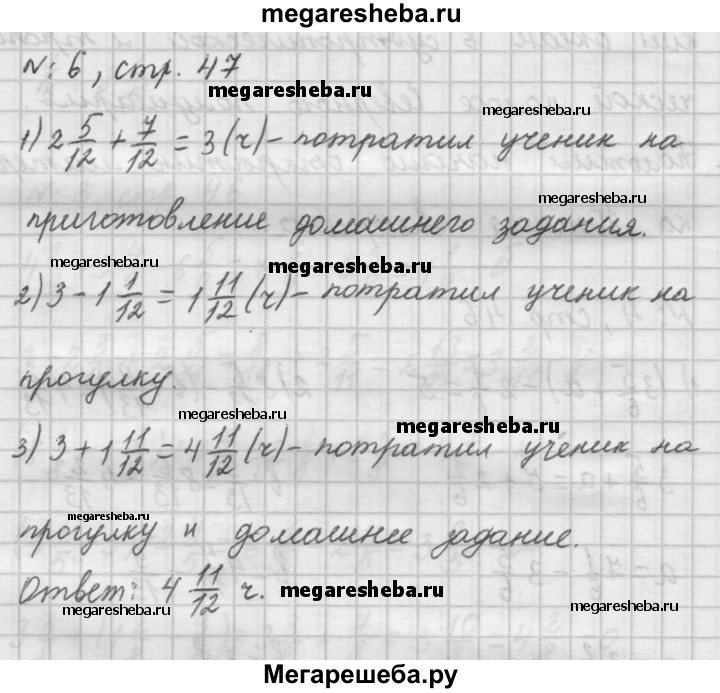 megaresheba.ru
№ 6, стр. 47
megaresheba.ru
1) 2 5/12 + 7/12 = 3 (ч) - потратил ученик на
megaresheba.ru
megaresheba.ru
приготовление домашнего задания.
megaresheba.ru
megaresheba.ru
2) 3 - 1 1/12 = 1 11/12 (ч) - потратил ученик на
прогулку.
megaresheba.ru
megaresheba.ru
3) 3 + 1 11/12 = 4 11/12 (ч) - потратил ученик на
megaresheba.ru
прогулку и домашнее задание.
Ответ: 4 11/12 ч.
megaresheba.ru
megaresheba.ru
megaresheba.ru
Мегарешеба.ру